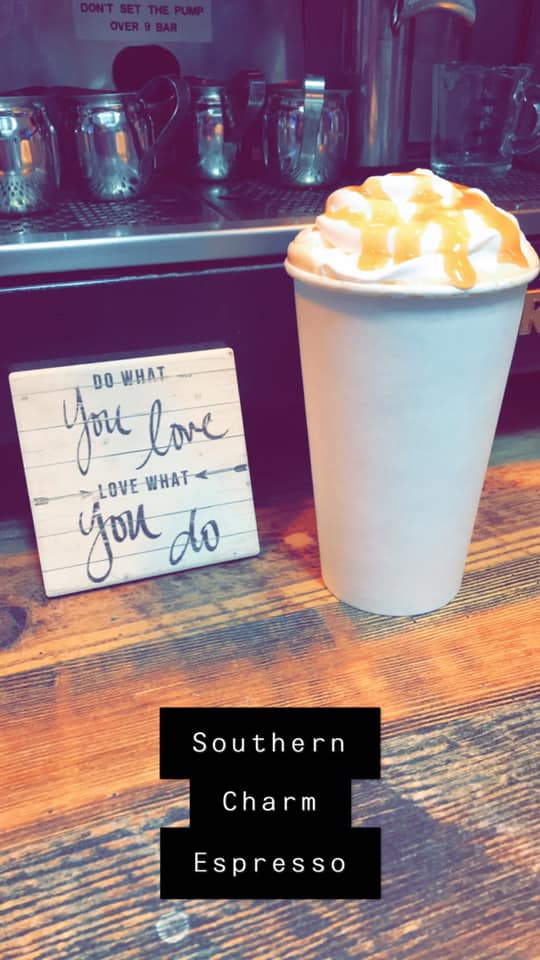 DON'T SET THE PUMP
OVER 9 BAR
DO WHAT
you love
LOVE WHAT
you do
Southern
Charm
Espresso